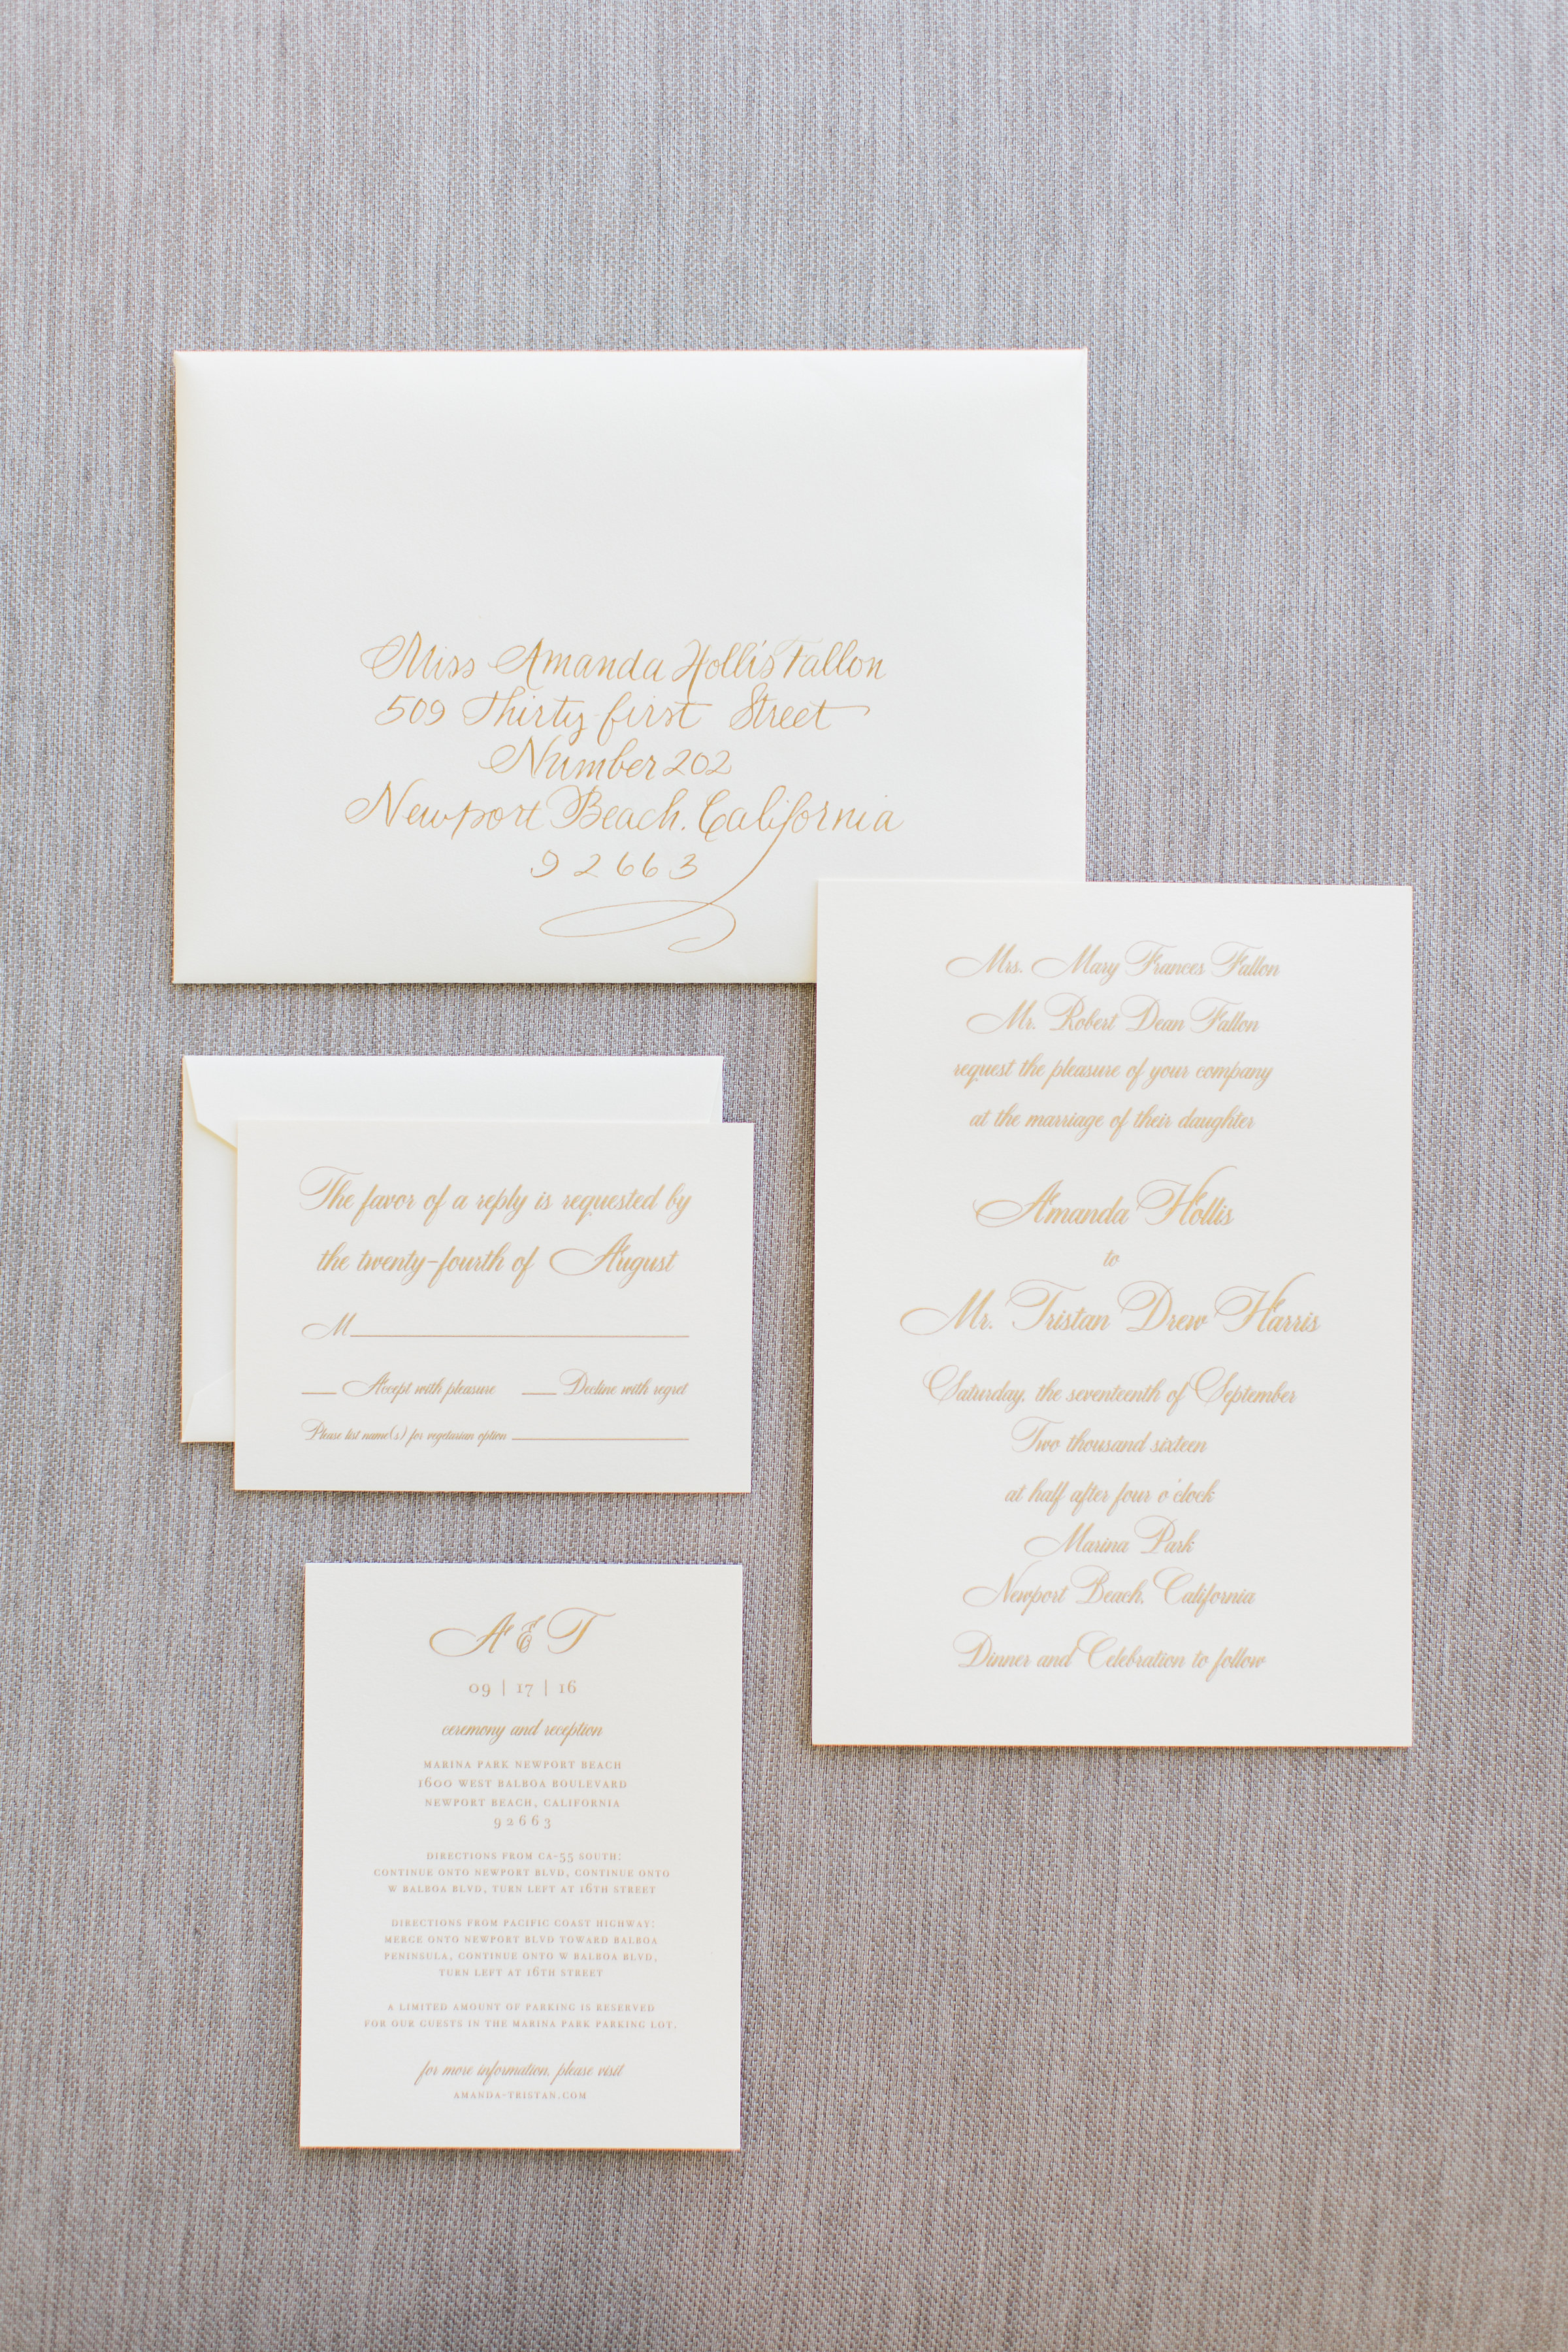 Miss Amanda Hollis Fallon
509 Thirty first Street
Number 202
Newport Beach, California
92663
Mrs. Mary Frances Fallon
Mr. Robert Dean Fallon
request the pleasure of your company
at the marriage of their daughter
Amanda Hollis
to
Mr. Tristan Drew Harris
Saturday, the seventeenth of September
Two thousand sixteen
at half after four o'clock
Marina Park
Newport Beach, California
Dinner and Celebration to follow
The favor of a reply is requested by
the twenty-fourth of August
M
Accept with pleasure Decline with regret
Please list name(s) for vegetarian option
A & T
09 | 17 | 16
ceremony and reception
MARINA PARK NEWPORT BEACH
1600 WEST BALBOA BOULEVARD
NEWPORT BEACH, CALIFORNIA
92663
DIRECTIONS FROM CA-55 SOUTH:
CONTINUE ONTO NEWPORT BLVD, CONTINUE ONTO
W BALBOA BLVD, TURN LEFT AT 16TH STREET
DIRECTIONS FROM PACIFIC COAST HIGHWAY:
MERGE ONTO NEWPORT BLVD TOWARD BALBOA
PENINSULA, CONTINUE ONTO W BALBOA BLVD,
TURN LEFT AT 16TH STREET
A LIMITED AMOUNT OF PARKING IS RESERVED
FOR OUR GUESTS IN THE MARINA PARK PARKING LOT.
for more information, please visit
AMANDA-TRISTAN.COM